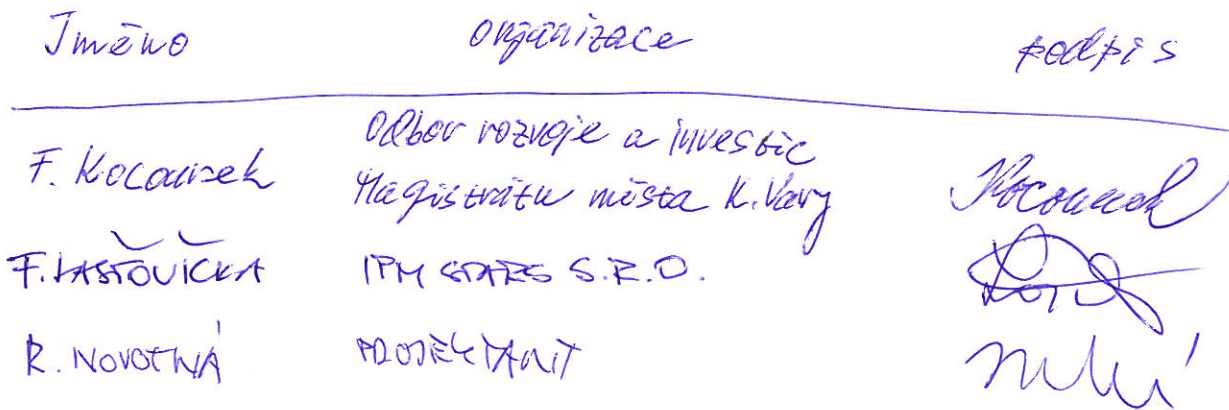 Jméno organizace podpis
F. Kocourek Odbor rozvoje a investic
Magistrátu města K. Vary Kocourek
F. LAŠŤOVIČKA IPM STARS S.R.O.
R. NOVOTNÁ PROJEKTANT